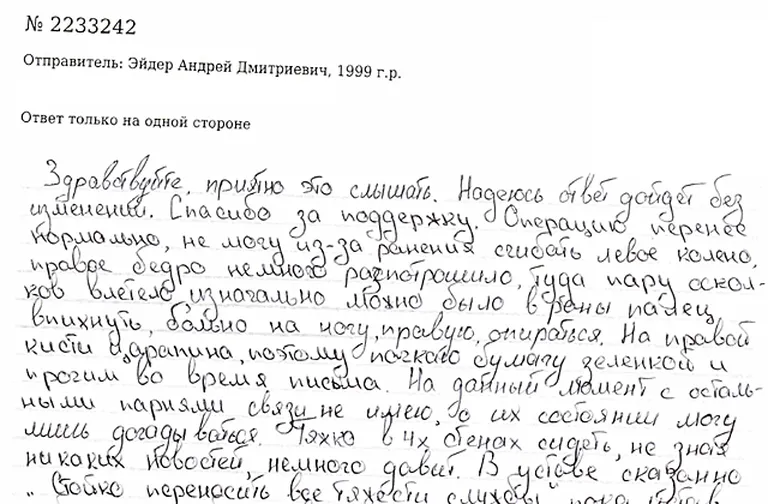 № 2233242
Отправитель: Эйдер Андрей Дмитриевич, 1999 г.р.
Ответ только на одной стороне
Здравствуйте, приятно это слышать. Надеюсь ответ дойдет без
изменений. Спасибо за поддержку. Операцию перенёс
нормально, не могу из-за ранения сгибать левое колено,
правое бедро немного распотрошило, туда пару оскол-
ков влетело, изначально можно было в раны палец
впихнуть, больно на ногу, правую, опираться. На правой
кисти царапина, поэтому пачкаю бумагу зеленкой и
прочим во время письма. На данный момент с осталь-
ными парнями связи не имею, о их состоянии могу
лишь догадываться. Тяжко в 4х стенах сидеть, не зная
никаких новостей, немного давит. В уставе сказанно
"Стойко переносить все тяжести службы"